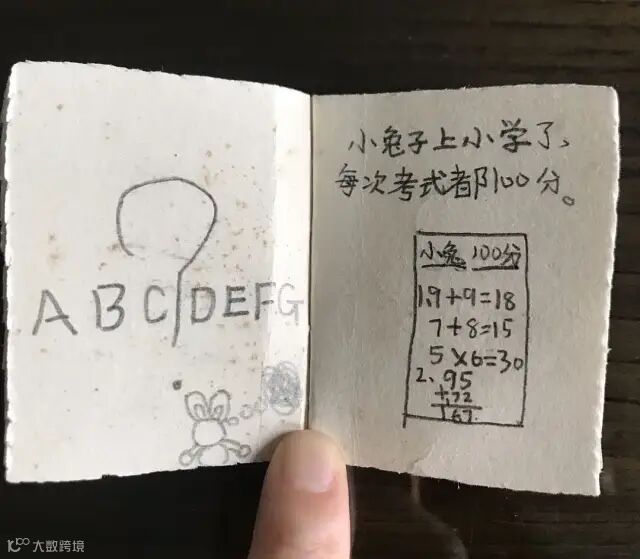 ABCDEFG
小兔子上小学了、
每次考式都100分。
小兔 100分
1、9+9=18
7+8=15
5×6=30
2、95
+72
167.
大数跨境